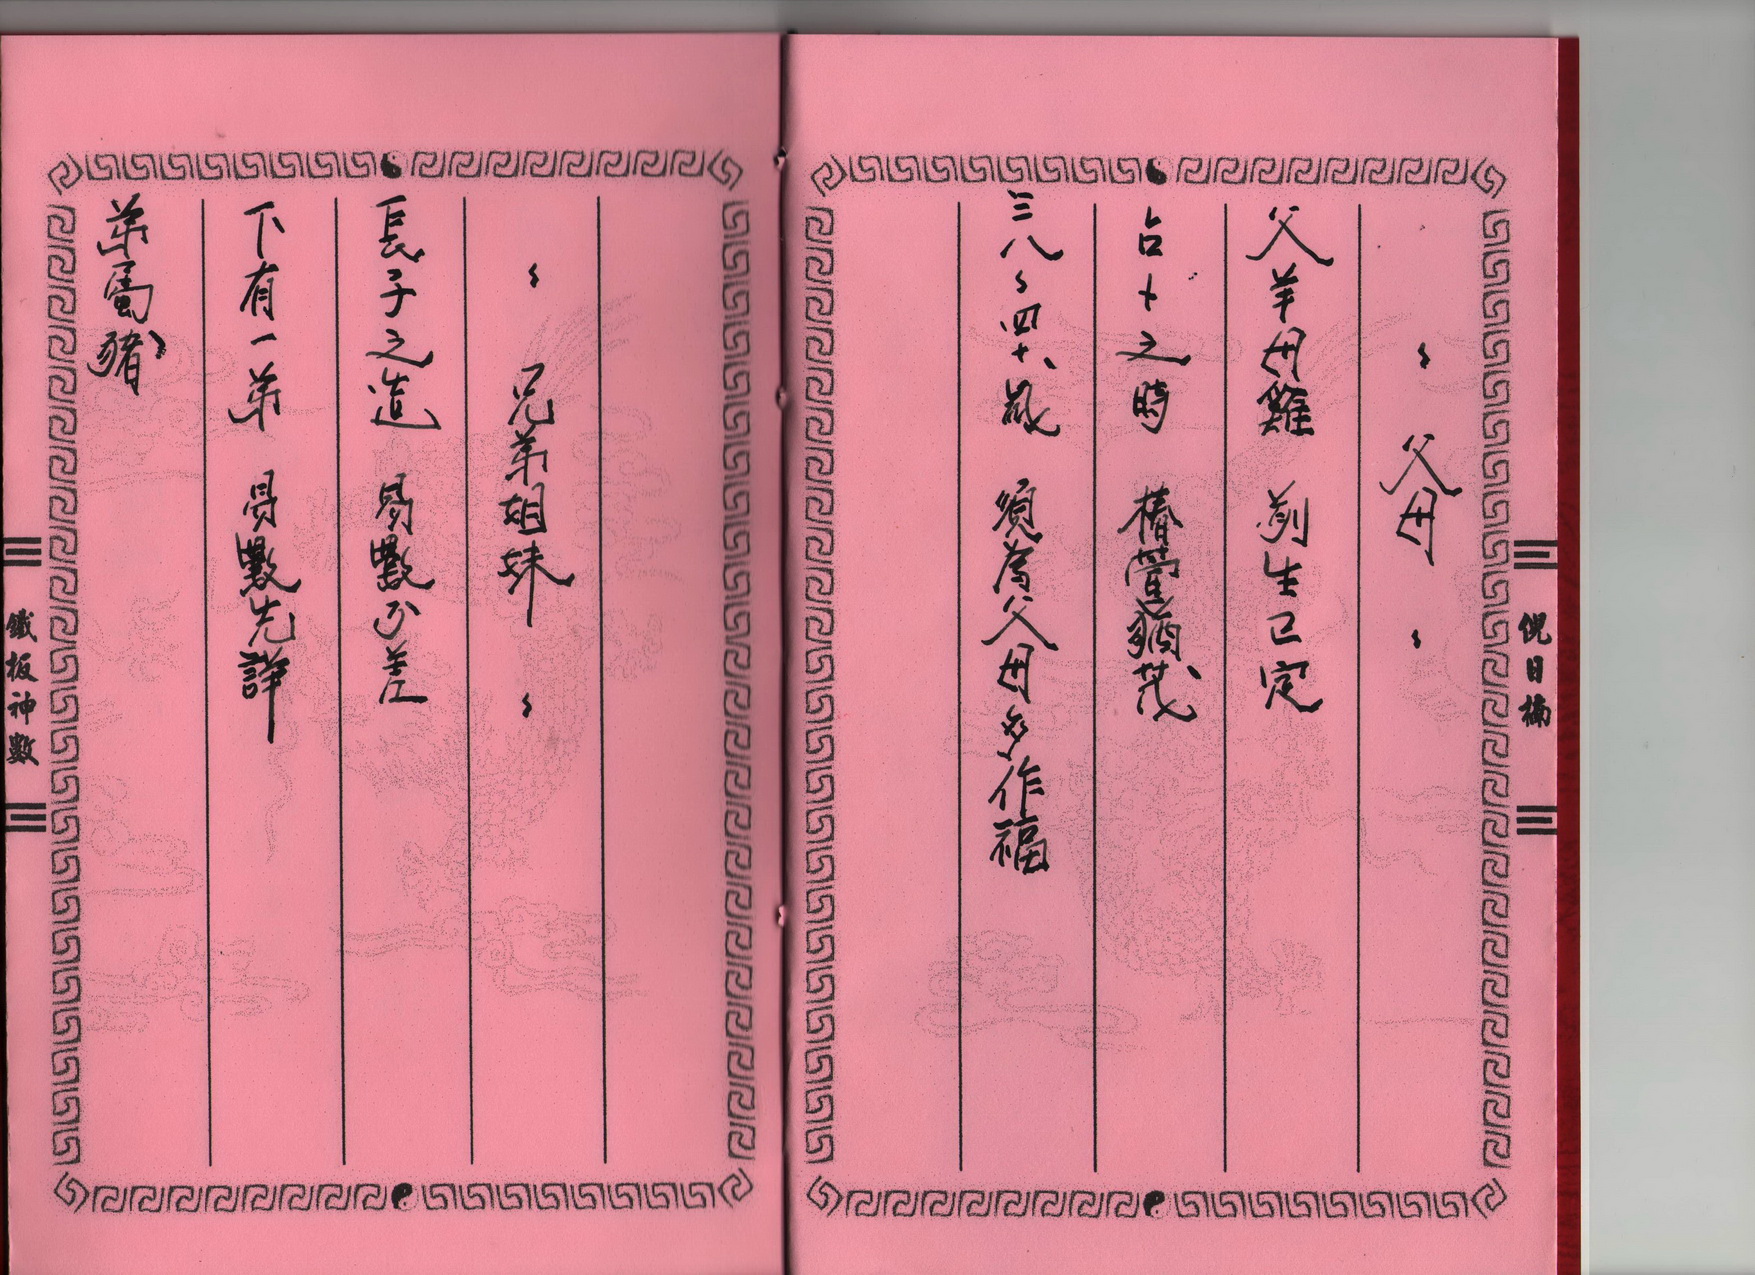 倪日楠
~ 父母 ~
父羊母雞 前生已定
占卜之時 椿萱猶茂
三八~四十八歲 須為父母多作福
~ 兄弟姐妹 ~
長子之造 易數不差
下有一弟 易數先詳
弟屬豬
鐵板神數